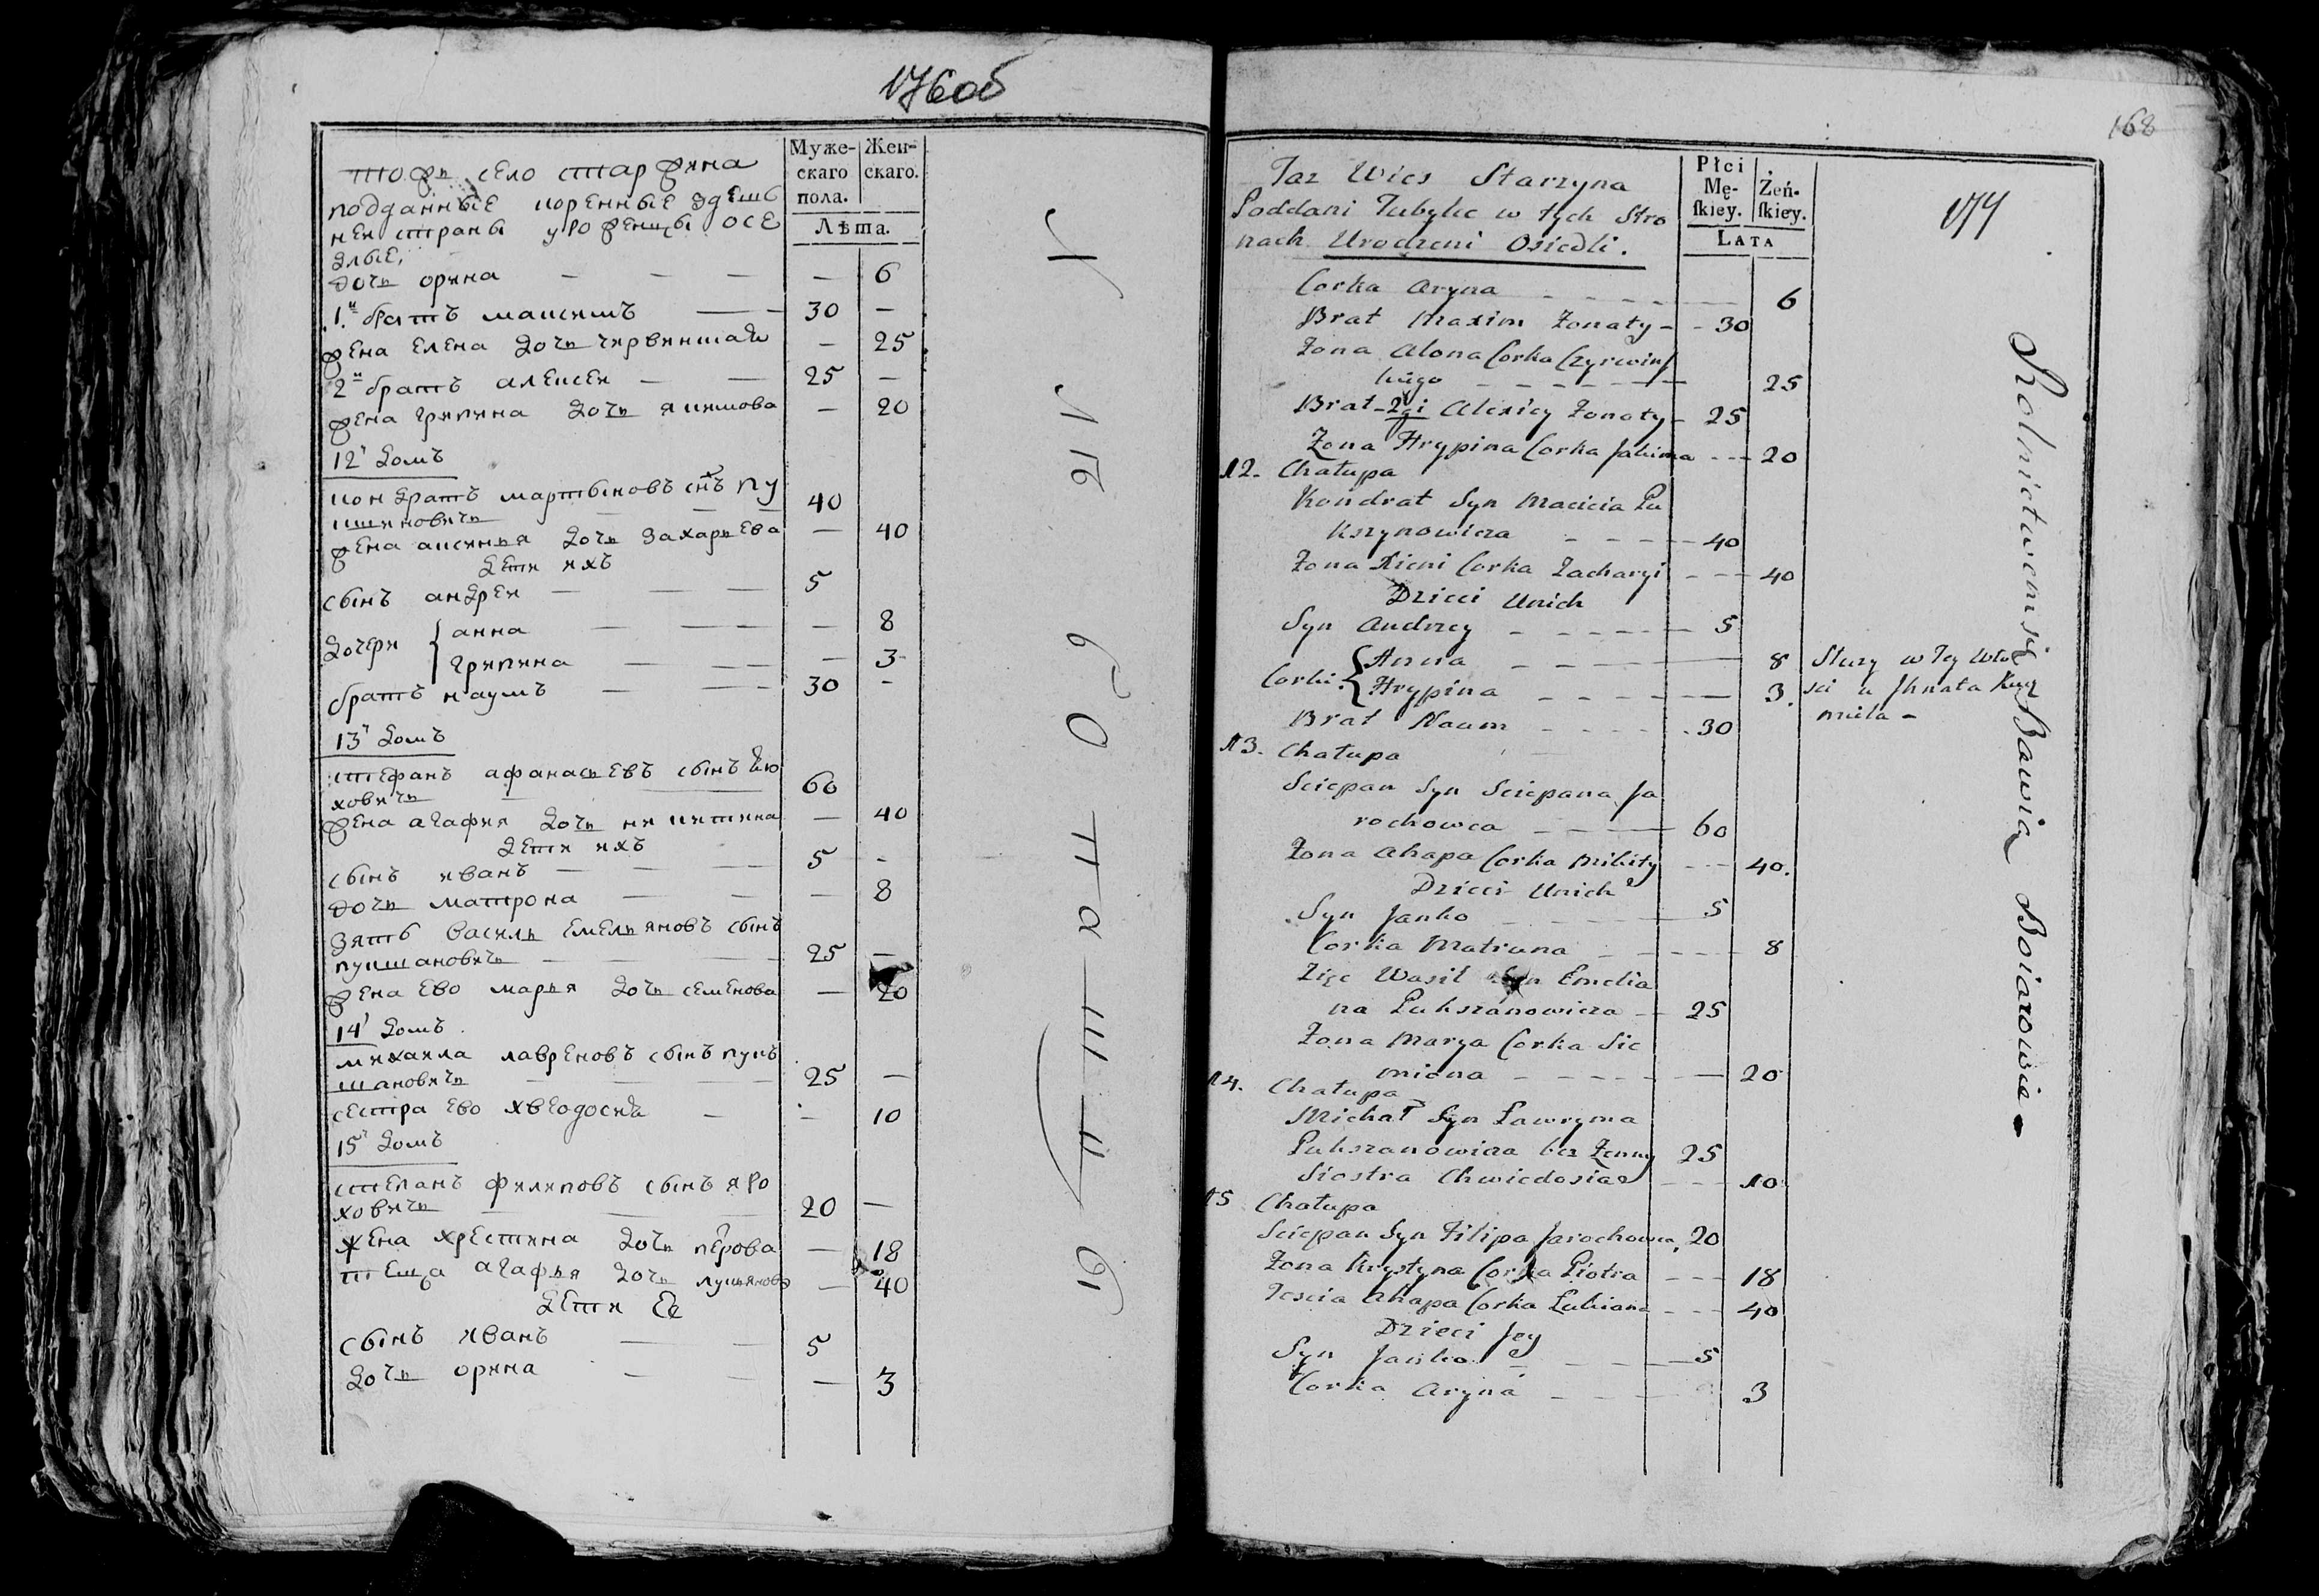 176об
Муже- Жен-
скаго скаго.
пола.
Лѣта.
тожь село старжина
подданные коренные здешь
неи страны уроженцы осе
длые,
дочь орина — — — — 6
1.й братъ максимъ — 30 —
жена елена дочь червинская — 25
2й братъ алексеи — — 25 —
жена грипина дочь якимова — 20
12й домъ
кондратъ мартыновъ снъ пу
кшиновичь — — — 40
жена аксинья дочь захарьева — 40
дети ихъ
сынъ андреи — — — 5
дочери { анна — — — — 8
грипина — — — — 3
братъ наумъ — — 30 -
13й домъ
стефанъ афанасьевъ сынъ
ховичь — — 60
жена агафия дочь никитина — 40
дети ихъ
сынъ иванъ — — — 5 -
дочь матрона — — — 8
зять василь емельяновъ сынъ
пукшановичь — — 25 —
жена ево марья дочь семенова — 20
14й домъ
михаила лавреновъ сынъ пукъ
шановичь — — — 25 —
сестра ево хведоска — — 10
15й домъ
степанъ филиповъ сынъ яро
ховичь — — — 20 —
жена христина дочь петрова — 18
теща агафья дочь лукьянова — 40
дети ее
сынъ иванъ — — 5
дочь орина — — — 3
168
177
Płci
Mę- Żeń-
skiey. skiey.
LATA
Taż Wieś Starzyna
Poddani Tubylce w tych Stro
nach Urodzeni Osiedli.
Corka Aryna - - - - — 6
Brat Maxim Żonaty - - 30
Żona Alona Corka Czyrwins
kiego - - - - - — 25
Brat 2gi Alexiey Żonaty - 25
Żona Hrypina Corka Jakima - - - 20
12. Chałupa
Kondrat Syn Macieia Pu
kszynowicza - - - — 40
Żona Xieni Corka Zacharyi - - - 40
Dzieci Unich
Syn Andrzey - - - - — 5
Corki. { Anna - - - — 8
Hrypina - - - - — 3.
Służy w Tey Wło
sci u Jhnata Kuź
mila -
Brat Naum - - - - . 30
13. Chałupa
Sciepan Syn Sciepana Ja
rochowca - - - — 60
Żona Ahapa Corka Mikity - - - 40.
Dzieci Unich
Syn Janko - - - - — 5
Corka Matruna - - - - - 8
Zięc Wasil Syn Emelia
na Pukszanowicza — 25
Żona Marya Corka Sie
miona - - - - - — 20
14. Chałupa
Michał Syn Ławryma
Pukszanowicza bez Żenny 25
Siostra Chwiedosia - - - 10
15 Chałupa
Sciepan Syn Filipa Jarochowca, 20
Żona Krystyna Corka Piotra - - - 18
Tescia Ahapa Corka Lukiana - - - 40
Dzieci Jey
Syn Janko - - - — 5
Corka Aryna - - - — 3
Rolnictwem się Bawią Boiarowie -